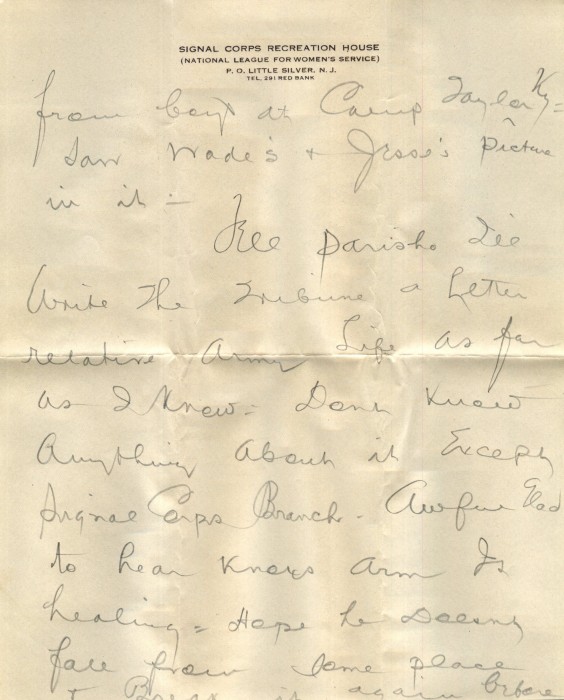 SIGNAL CORPS RECREATION HOUSE
(NATIONAL LEAGUE FOR WOMEN'S SERVICE)
P. O. LITTLE SILVER, N. J.
TEL. 291 RED BANK
from boys at Camp Taylor Ky =
Saw Wade's + Jesse's Picture
in it -
Tell Parisho I'le
Write The Tribune a Letter
relative Army Life as far
as I Know - Dont Know
Anything About it Except
Signal Corps Branch - Awful Glad
to hear Knoxs arm Is
healing = Hope he Doesnt
fall from some place
+ Break it again before